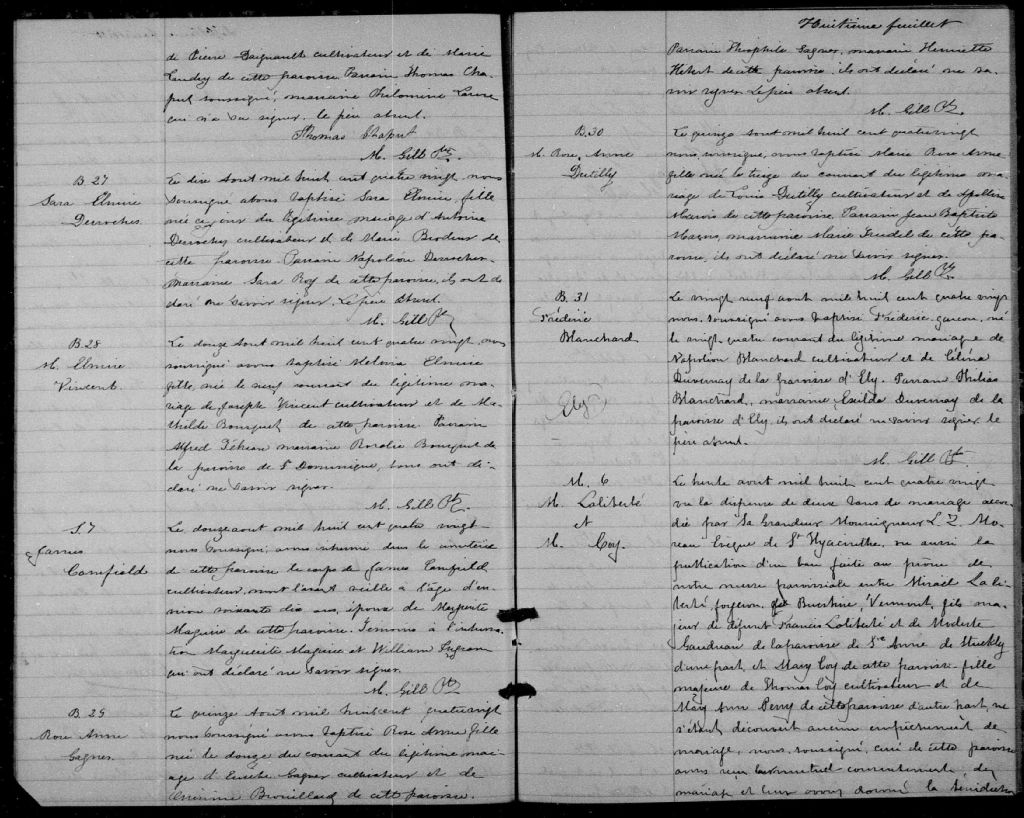 de Pierre Daignault cultivateur et de Marie
Landry de cette paroisse Parrain Thomas Cha-
put soussigné, marraine Philomine
qui n'a su signer. le père absent.
Thomas Chaput
M. Gill Ptre.
B. 27
Sara Elmire
Desroches
Le dix aout mil huit cent quatre vingt, nous
soussigné avons baptisé Sara Elmire, fille
née ce jour du légitime mariage d'Antoine
Desroches cultivateur et de Marie Brodeur de
cette paroisse. Parrain Napoléon Desroches
marraine Sara Roy de cette paroisse, ils ont dé-
claré ne savoir signer. Le père absent.
M. Gill Ptre
B. 28
M. Elmire
Vincent
Le douze aout mil huit cent quatre vingt, nous
soussigné avons baptisé Elmire
fille, née le neuf courant du légitime ma-
riage de Joseph Vincent cultivateur et de Ma-
thilde Bousquet de cette paroisse Parrain
Alfred marraine Rosalie Bousquet de
la paroisse de St Dominique, tous ont dé-
claré ne savoir signer.
M. Gill Ptre.
S. 7
James
Camfield
Le douze aout mil huit cent quatre vingt
nous soussigné, avons inhumé dans le cimetière
de cette paroisse le corps de James Camfield,
cultivateur, mort l'avant veille à l'âge d'en-
viron soixante dix ans, époux de Margaret
Maguire de cette paroisse. Témoins à l'inhuma-
tion Marguerite Maguire et William Ingram
qui ont déclaré ne savoir signer.
M. Gill Ptre
B. 29
Rose Anne
Gagner.
Le quinze aout mil huit cent quatre vingt
nous soussigné avons baptisé Rose Anne fille
née le douze du courant du légitime mari-
age d' Gagner cultivateur et de
Brouillard de cette paroisse.
Huitième feuillet
Parrain Théophile Gagner, marraine Henriette
Hébert de cette paroisse, ils ont déclaré ne sa-
voir signer. Le père absent.
M. Gill Ptre.
B. 30
M. Rose Anne
Dutilly
Le quinze aout mil huit cent quatre vingt
nous, soussigné, avons baptisé Marie Rose Anne
fille née le treize du courant du légitime ma-
riage de Louis Dutilly cultivateur et de Apolline
de cette paroisse. Parrain Jean Baptiste
marraine Marie Trudel de cette pa-
roisse, ils ont déclaré ne savoir signer.
M. Gill Ptre
B. 31
Frédéric
Blanchard
Ely
Le vingt neuf aout mil huit cent quatre vingt
nous soussigné avons baptisé Frédéric garçon, né
le vingt quatre courant du légitime mariage de
Napoléon Blanchard cultivateur et de Célina
Duvernay de la paroisse d'Ely. Parrain Philias
Blanchard, marraine Exilda Duvernay de la
paroisse d'Ely, ils ont déclaré ne savoir signer. le
père absent.
M. Gill Ptre
M. 6
M. Laliberté
et
M. Coy.
Le trente aout mil huit cent quatre vingt
vu la dispense de deux bans de mariage accor-
dée par Sa Grandeur Monseigneur L. Z. Mo-
reau Evêque de St Hyacinthe, vu aussi la
publication d'un ban faite au prône de
notre messe paroissiale entre Misaël Lali-
berté, forgeron, de Vermont, fils ma-
jeur de défunt Francis Laliberté et de Modeste
Gaudreau de la paroisse de Ste Anne de Stuckly
d'une part, et Mary Coy de cette paroisse fille
majeure de Thomas Coy cultivateur et de
Mary Ann Perry de cette paroisse d'autre part, ne
s'étant découvert aucun empêchement de
mariage, nous, soussigné, curé de cette paroisse
avons reçu leur mutuel consentement de
mariage et leur avons donné la bénédiction